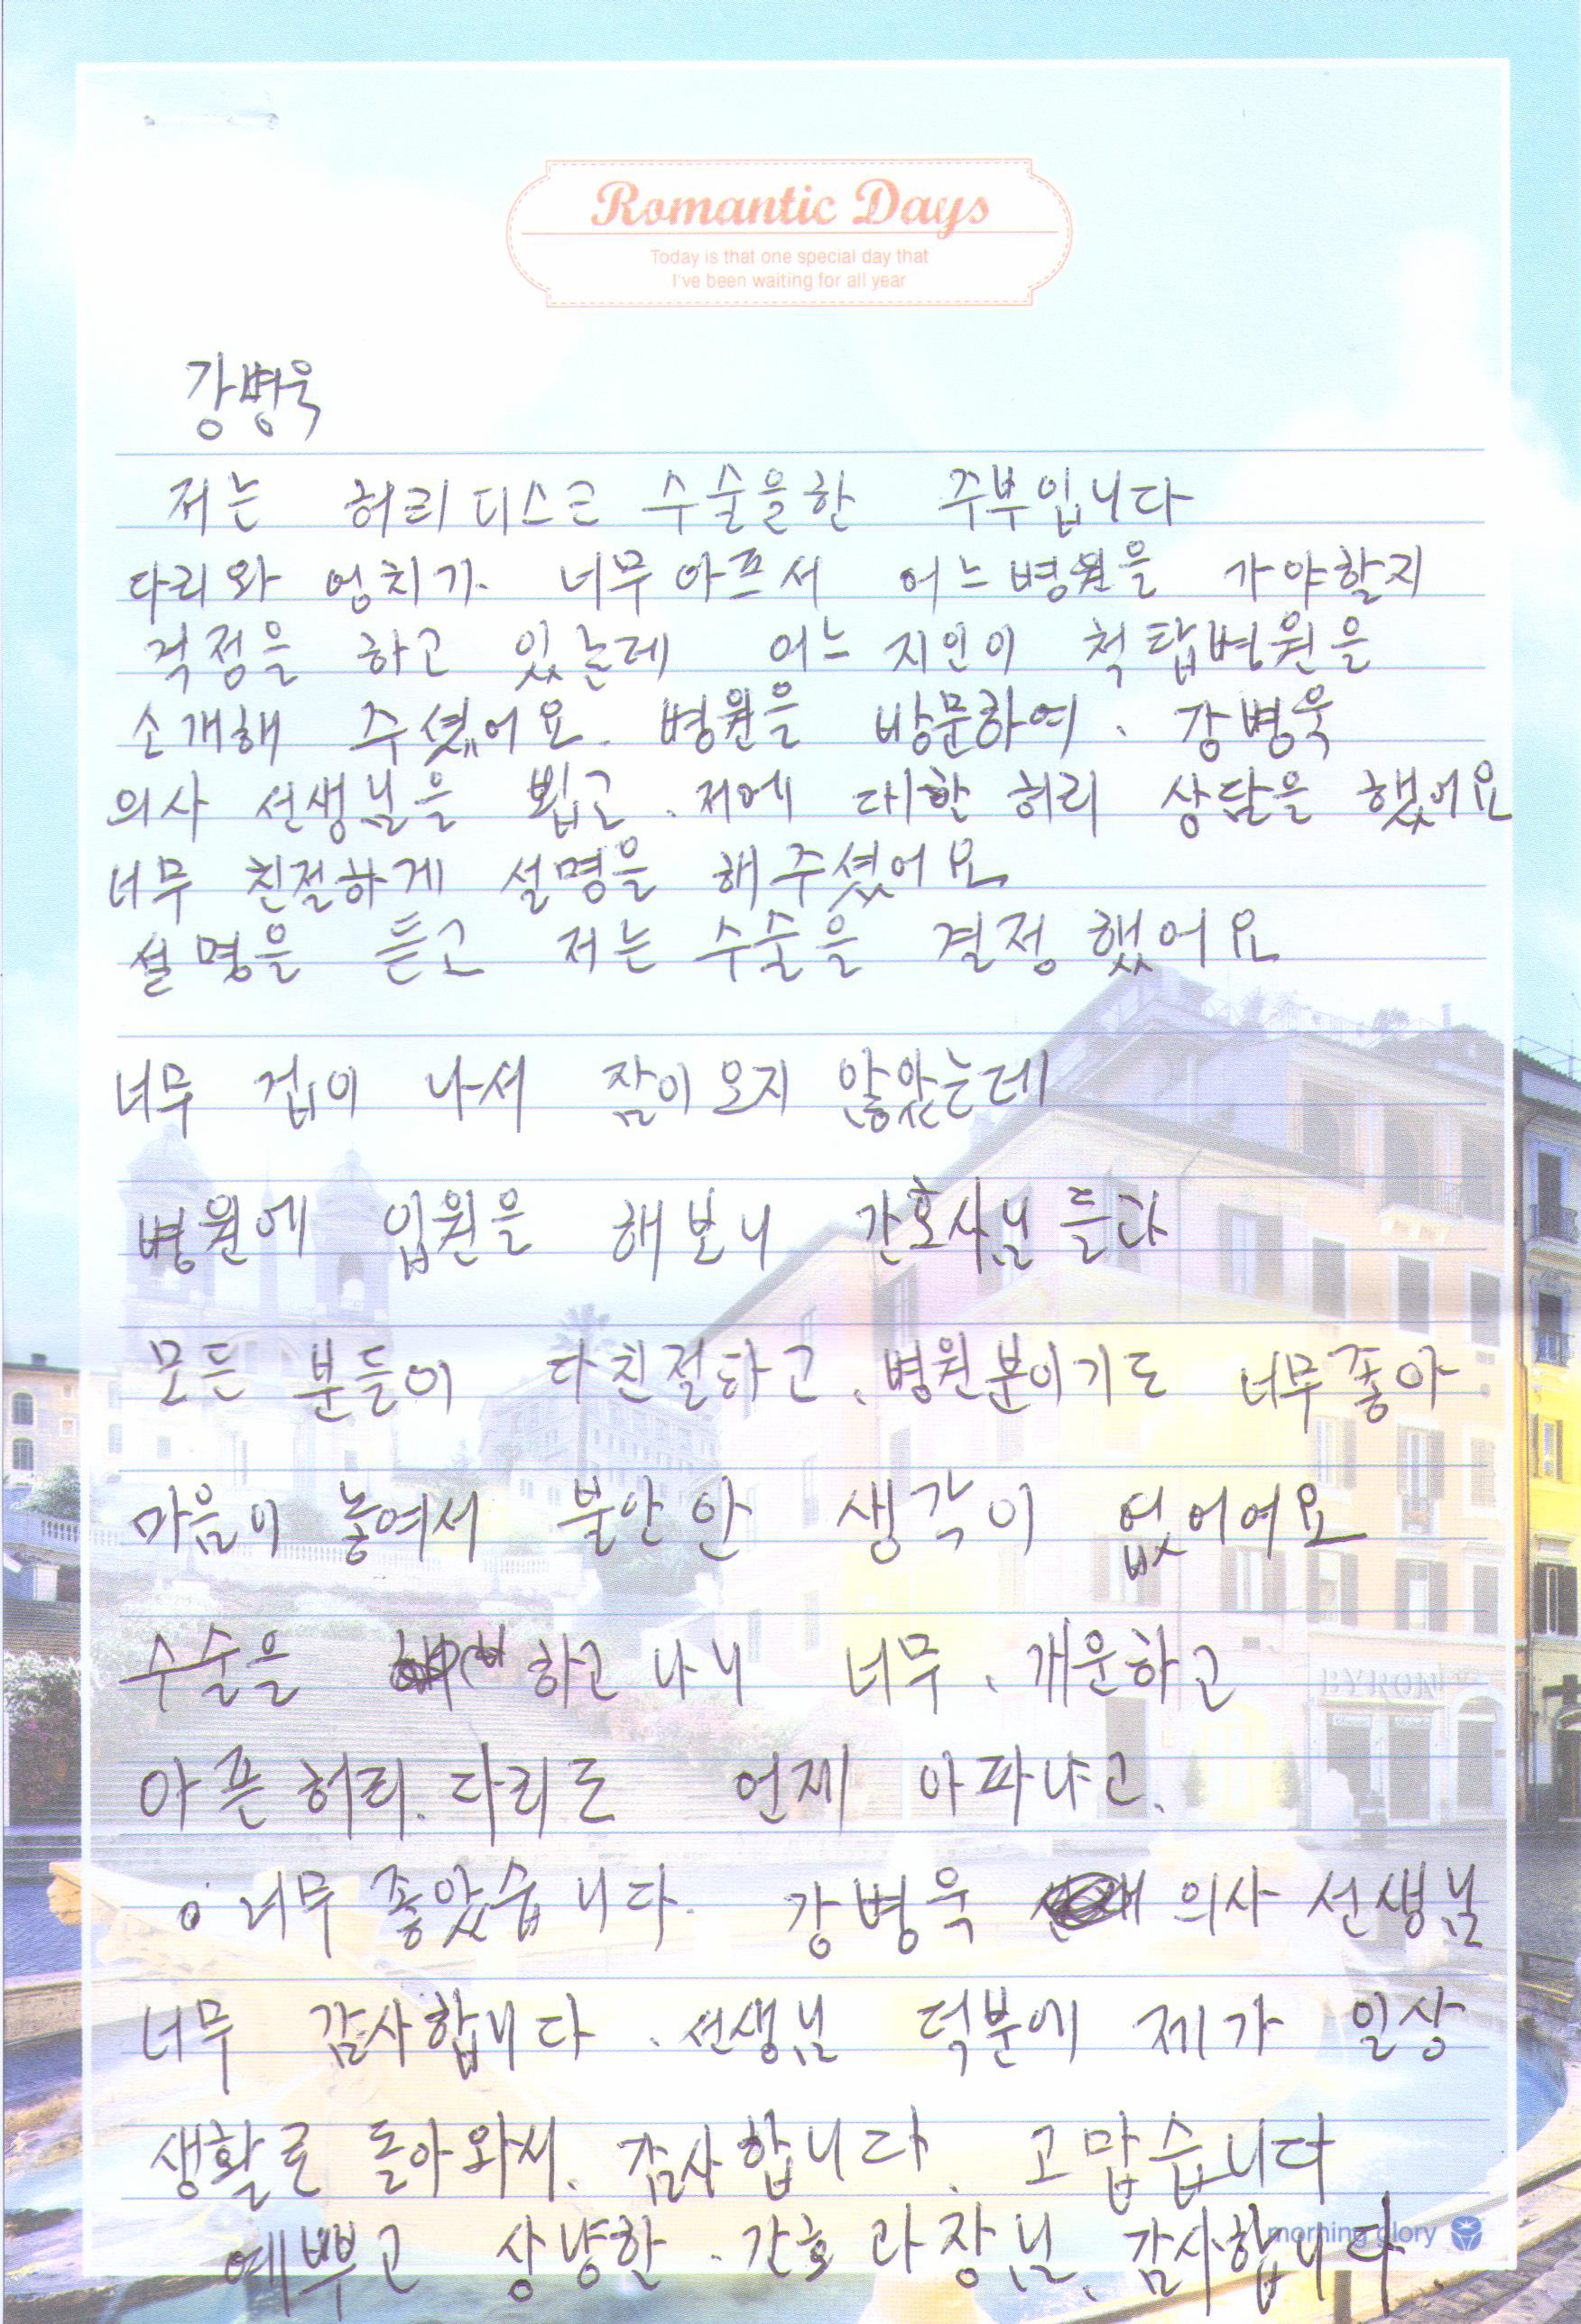 Romantic Days
Today is that one special day that
I've been waiting for all year
강병욱
저는 허리 디스크 수술을한 주부입니다
다리와 엉치가 너무 아프서 어느 병원을 가야할지
걱정을 하고 있는데 어느 지인이 척탑병원을
소개해 주셨어요. 병원을 방문하여. 강병욱
의사 선생님을 뵙고. 저에 대한 허리 상담을 했어요
너무 친절하게 설명을 해주셨어요
설명을 듣고 저는 수술을 결정 했어요
너무 겁이 나서 잠이 오지 않았는데
병원에 입원을 해보니 간호사님 들과
모든 분들이 다 친절하고. 병원 분이기도 너무 좋아
마음이 놓여서 불안 안 생각이 없어여요
수술을 하고 나니 너무. 개운하고
아픈 허리. 다리도 언제 아파냐고.
너무 좋았습니다. 강병욱 의사 선생님
너무 감사합니다. 선생님 덕분에 제가 일상
생활로 돌아와서. 감사합니다. 고맙습니다
예쁘고 상냥한. 간호 과장님. 감사합니다.
morning glory